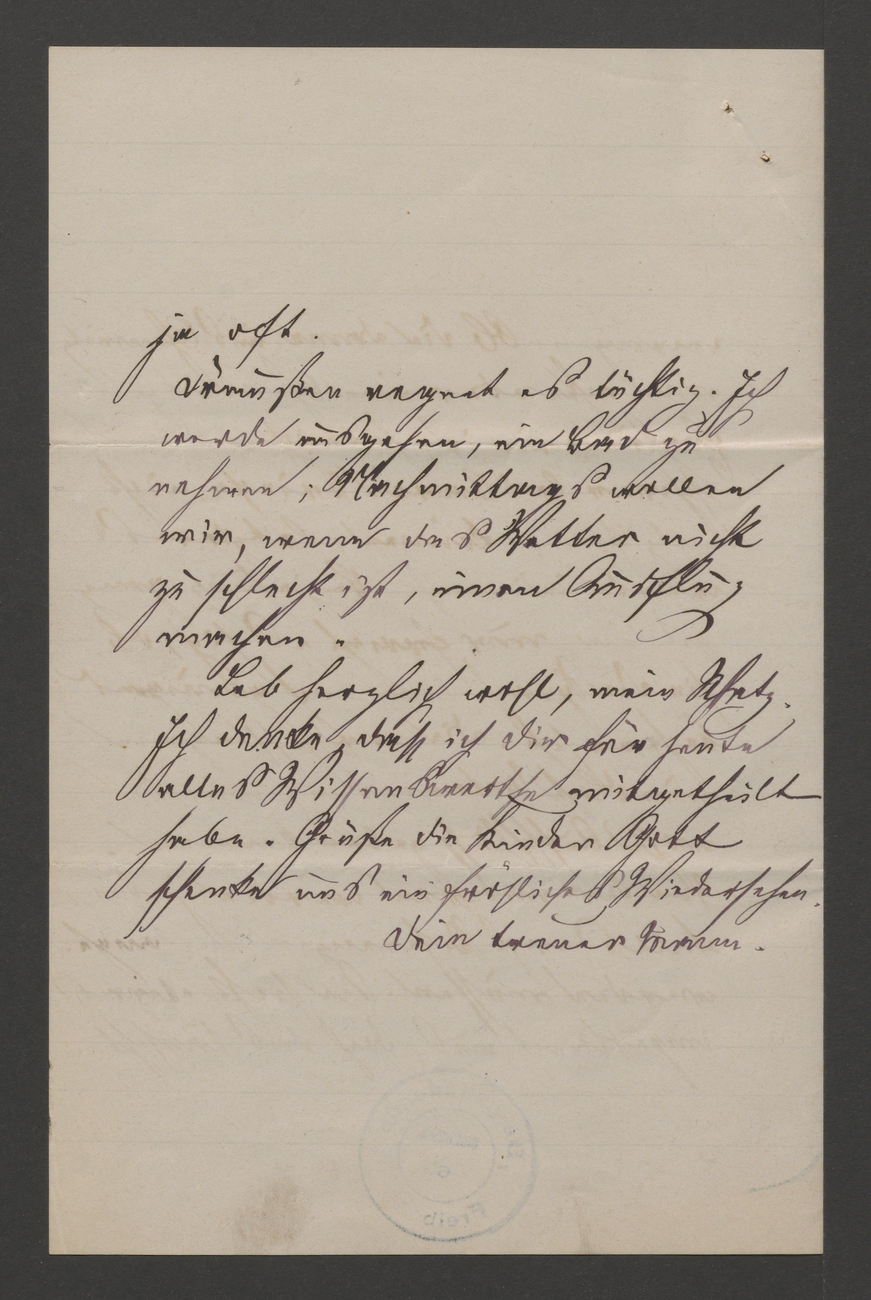 ja oft.
Draußen regnet es tüchtig. Ich
werde ausgehen, ein Bad zu
nehmen; Nachmittags wollen
wir, wenn das Wetter nicht
zu schlecht ist, einen Ausflug
machen.
Leb herzlich wohl, mein Schatz.
Ich denke, daß ich dir für heute
alles Wissenswerthe mitgetheilt
habe. Grüße die Kinder Gott
schenke uns ein fröhliches Wiedersehen.
Dein treuer Mann.